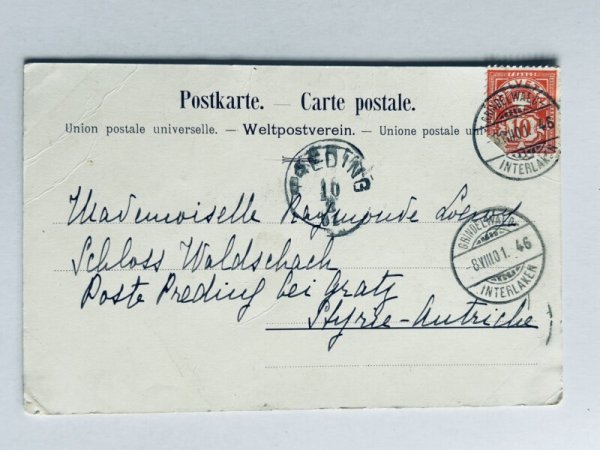 Postkarte. — Carte postale.
Union postale universelle. – Weltpostverein. – Unione postale uni
HELVETIA
FRANCO
10
GRINDELWALD
46
INTERLAKEN
PREDING
10
8
01
Mademoiselle Raymonde
Schloss Waldschach
GRINDELWALD
8.VIII.01. 46
INTERLAKEN
Poste Preding bei Gratz
Styrie-Autriche